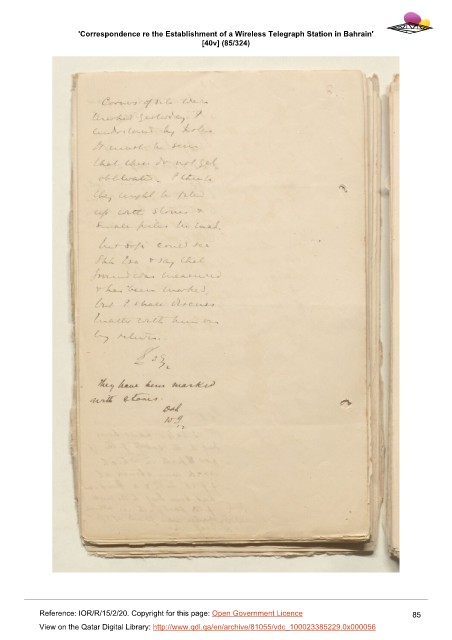 'Correspondence re the Establishment of a Wireless Telegraph Station in Bahrain'
[40v] (85/324)
Corners of site were
marked yesterday. I
understand by holes.
It must be seen
that these do not get
obliterated. I think
they might be filled
up with stones &
small
but Sofs could see
& say that
ground was measured
& has been marked,
but I shall discuss
matter with him on
my return.
They have been marked
with stones.
Reference: IOR/R/15/2/20. Copyright for this page: Open Government Licence
View on the Qatar Digital Library: http://www.qdl.qa/en/archive/81055/vdc_100023385229.0x000056
85